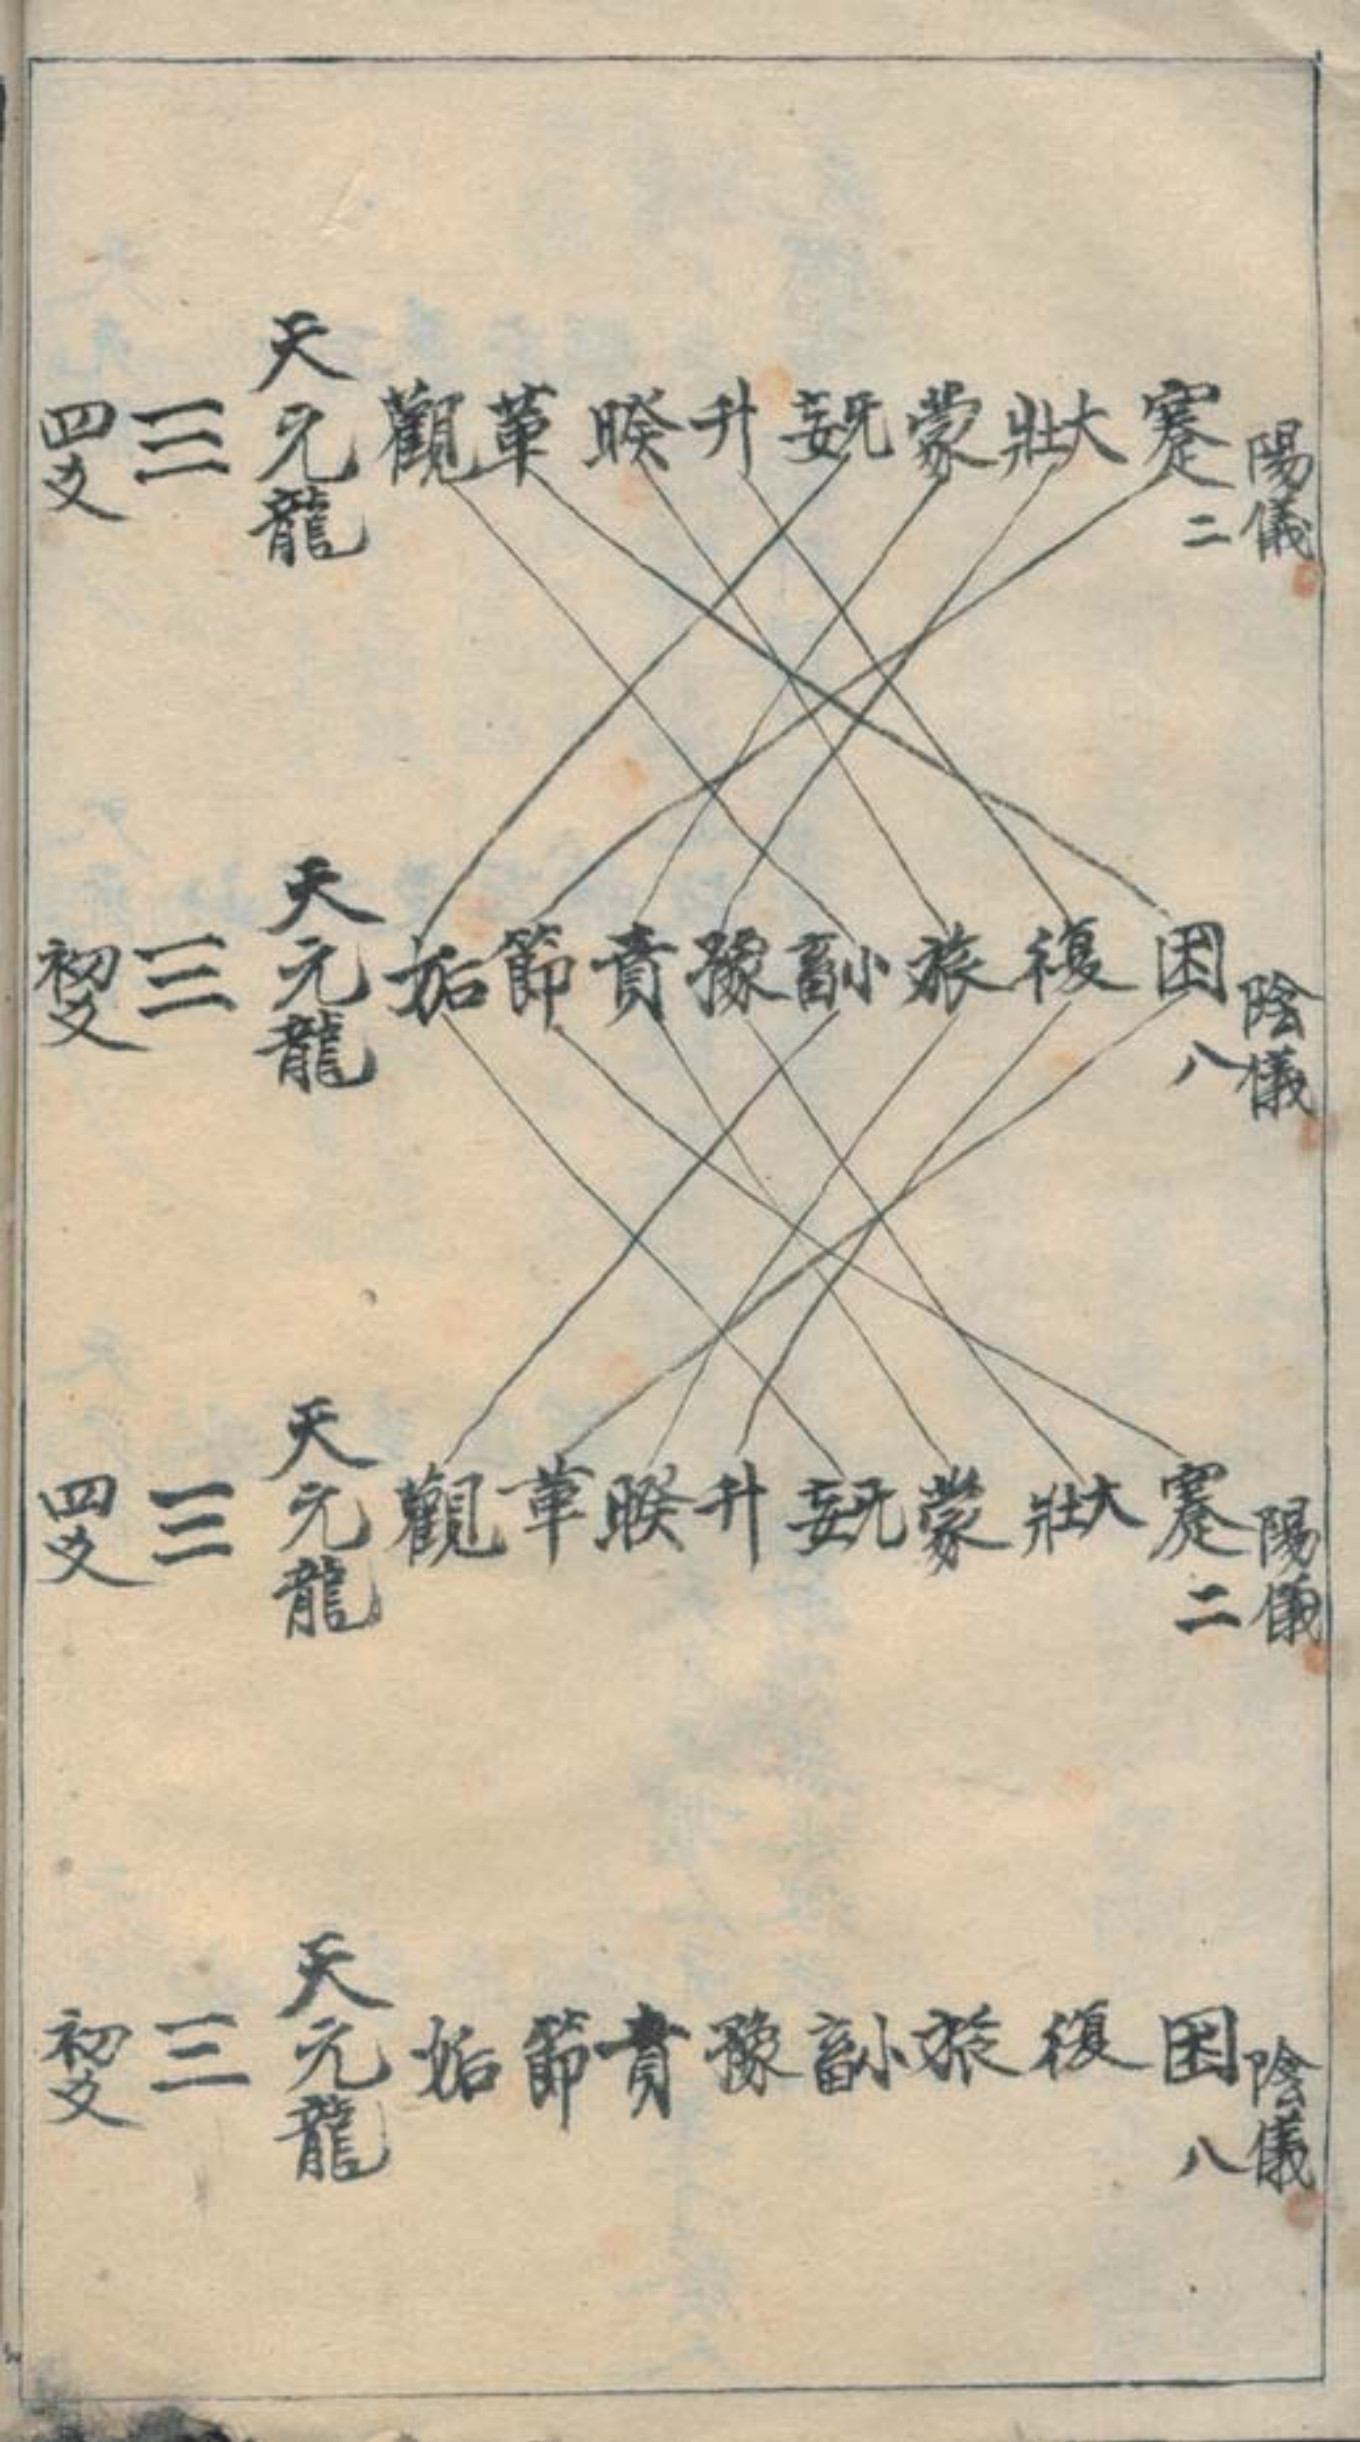 陽儀二 蹇 大壯 蒙 无妄 升 暌 革 觀 天元龍 三 四爻
陰儀八 困 復 旅 小畜 豫 賁 節 姤 天元龍 三 初爻
陽儀二 蹇 大壯 蒙 无妄 升 暌 革 觀 天元龍 三 四爻
陰儀八 困 復 旅 小畜 豫 賁 節 姤 天元龍 三 初爻